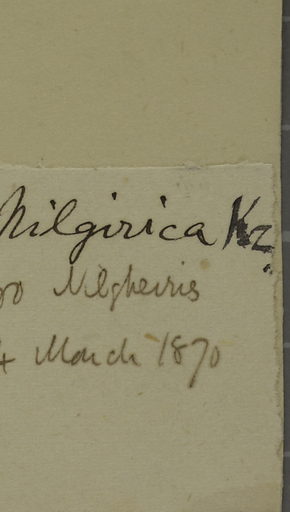 Nilgirica Kz
Nilgheiris
4 March 1870